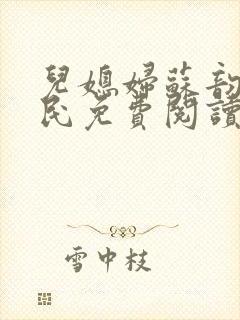 兒媳婦蘇韵
民免費閱讀
雪中枝